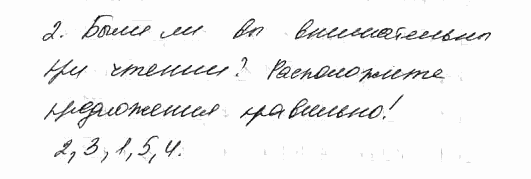 2. Были ли вы внимательны
при чтении? Расположите
предложения правильно!
2, 3, 1, 5, 4.